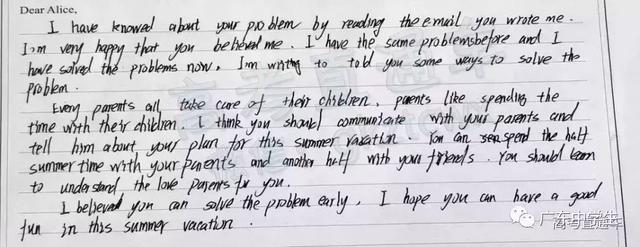 Dear Alice,
I have knowed about your problem by reading the email you wrote me.
I'm very happy that you believed me. I have the same problems before and I
have solved the problems now. I'm writing to told you some ways to solve the
problem.
Every parents all take care of their children. parents like spending the
time with their children. I think you should communicate with your parents and
tell him about your plan for this summer vacation. You can spend the half
summer time with your parents and another half with your friends. You should learn
to understand the love parents for you.
I believed you can solve the problem early. I hope you can have a good
fun in this summer vacation.
广东中学生
高考直通车